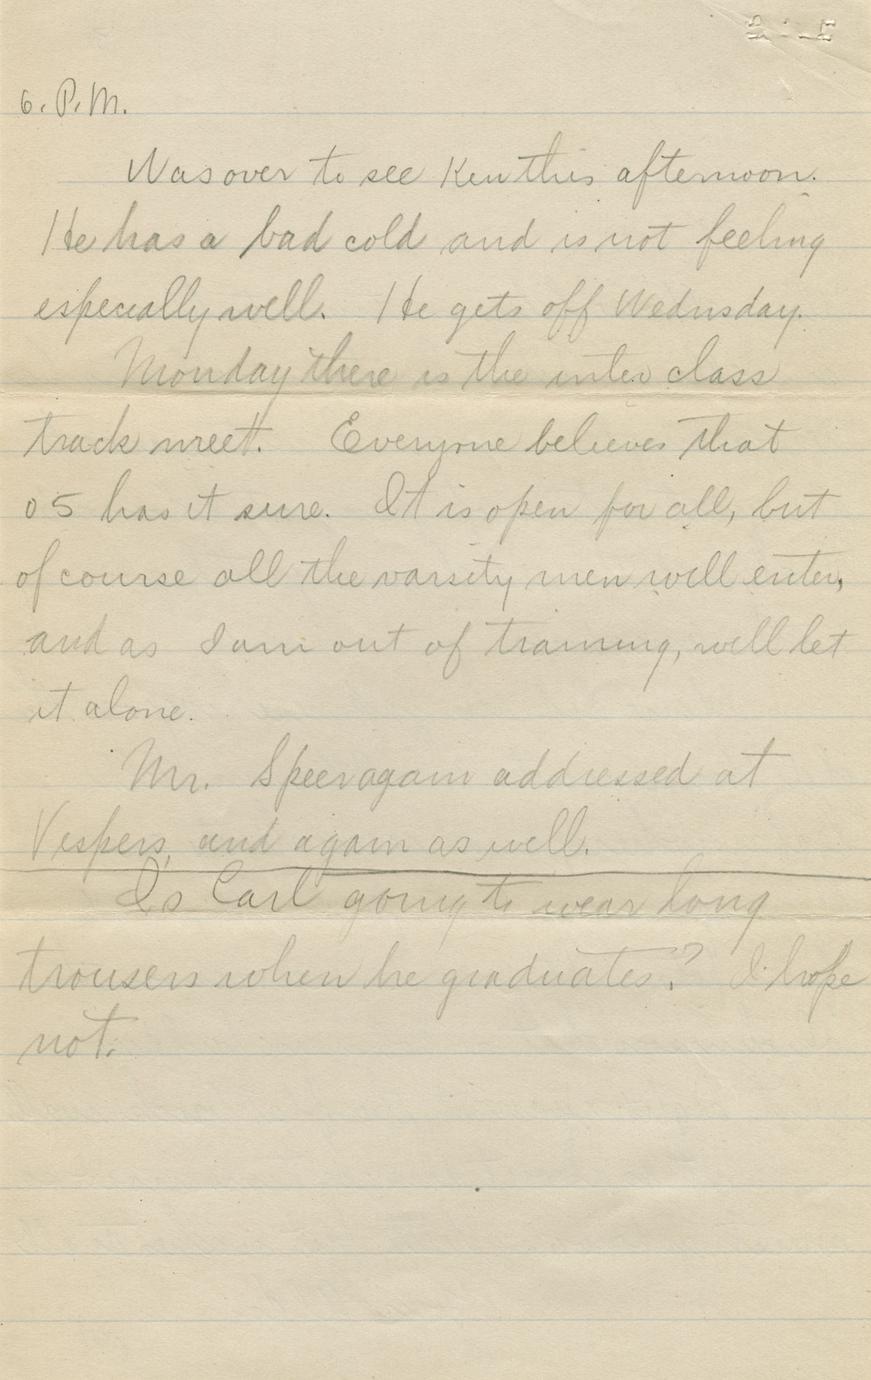 6. P. M.
Was over to see Ken this afternoon.
He has a bad cold and is not feeling
especially well. He gets off Wednsday.
Monday there is the inter class
track meet. Everyone believes that
05 has it sure. It is open for all, but
of course all the varsity men will enter,
and as I am out of training, will let
it alone.
Mr. Speer again addressed at
Vespers, and again as well.
Is Carl going to wear long
trousers when he graduates? I hope
not.